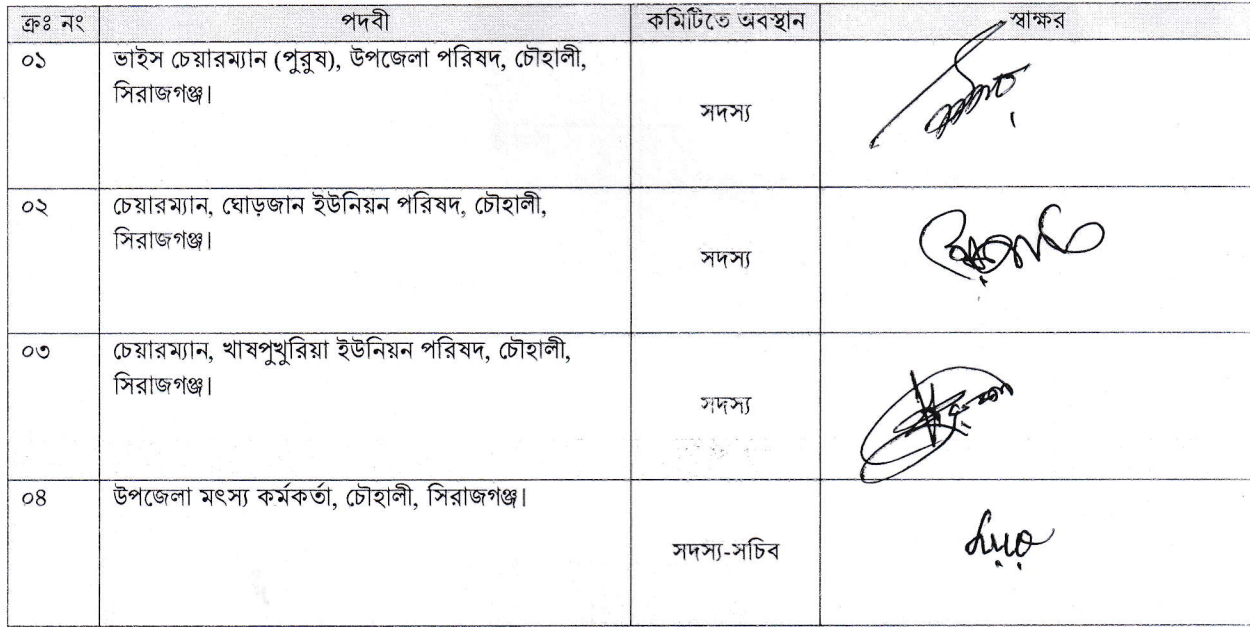 ক্রঃ নং পদবী কমিটিতে অবস্থান স্বাক্ষর
০১ ভাইস চেয়ারম্যান (পুরুষ), উপজেলা পরিষদ, চৌহালী,
সিরাজগঞ্জ।
সদস্য
০২ চেয়ারম্যান, ঘোড়জান ইউনিয়ন পরিষদ, চৌহালী,
সিরাজগঞ্জ।
সদস্য
০৩ চেয়ারম্যান, খাষপুখুরিয়া ইউনিয়ন পরিষদ, চৌহালী,
সিরাজগঞ্জ।
সদস্য
০৪ উপজেলা মৎস্য কর্মকর্তা, চৌহালী, সিরাজগঞ্জ।
সদস্য-সচিব